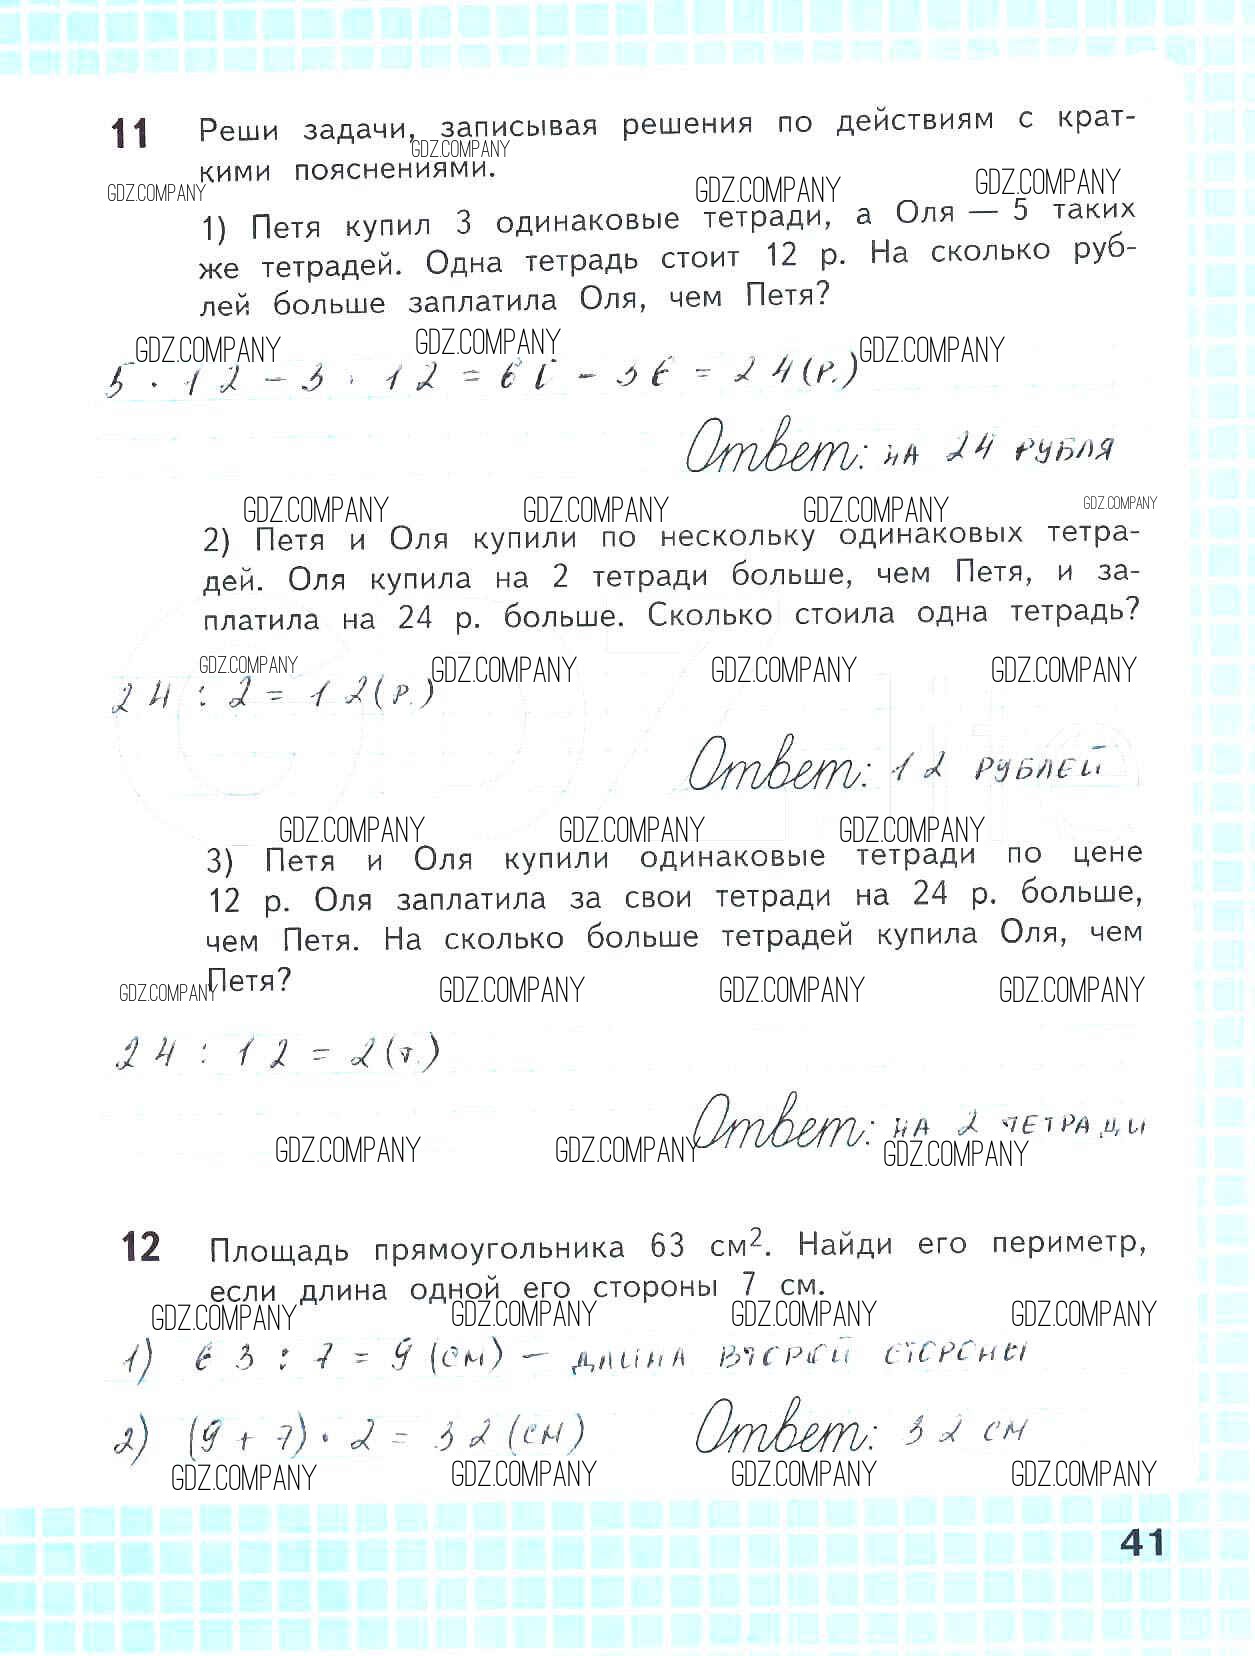 11 Реши задачи, записывая решения по действиям с крат-
GDZ.COMPANY
кими пояснениями.
GDZ.COMPANY GDZ.COMPANY GDZ.COMPANY
1) Петя купил 3 одинаковые тетради, а Оля — 5 таких
же тетрадей. Одна тетрадь стоит 12 р. На сколько руб-
лей больше заплатила Оля, чем Петя?
GDZ.COMPANY GDZ.COMPANY GDZ.COMPANY
5 · 12 - 3 · 12 = 60 - 36 = 24 (р.)
Ответ: на 24 рубля
GDZ.COMPANY GDZ.COMPANY GDZ.COMPANY GDZ.COMPANY
2) Петя и Оля купили по нескольку одинаковых тетра-
дей. Оля купила на 2 тетради больше, чем Петя, и за-
платила на 24 р. больше. Сколько стоила одна тетрадь?
GDZ.COMPANY GDZ.COMPANY GDZ.COMPANY GDZ.COMPANY
24 : 2 = 12 (р.)
GDZ life
Ответ: 12 рублей
GDZ.COMPANY GDZ.COMPANY GDZ.COMPANY
3) Петя и Оля купили одинаковые тетради по цене
12 р. Оля заплатила за свои тетради на 24 р. больше,
чем Петя. На сколько больше тетрадей купила Оля, чем
Петя?
GDZ.COMPANY GDZ.COMPANY GDZ.COMPANY GDZ.COMPANY
24 : 12 = 2 (т.)
Ответ: на 2 тетради
GDZ.COMPANY GDZ.COMPANY GDZ.COMPANY
12 Площадь прямоугольника 63 см². Найди его периметр,
если длина одной его стороны 7 см.
GDZ.COMPANY GDZ.COMPANY GDZ.COMPANY GDZ.COMPANY
1) 63 : 7 = 9 (см) — длина второй стороны
2) (9 + 7) · 2 = 32 (см) Ответ: 32 см
GDZ.COMPANY GDZ.COMPANY GDZ.COMPANY GDZ.COMPANY
41